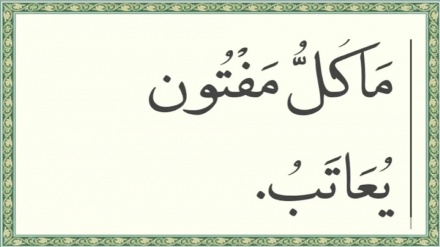 مَا كُلُّ مَفْتُون
يُعَاتَبُ.